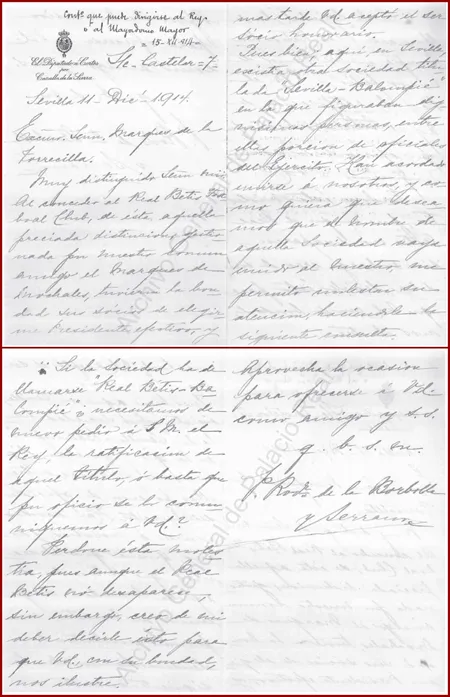 Contº que puede dirigirse al Rey
o al Mayordomo Mayor
15-XII-914
El Diputado a Cortes
por
Cazalla de la Sierra
S/c Castelar = 7 =
Sevilla 11 = Dicº - 1914.
Excmo. Señor Marques de la
Torrecilla.
Muy distinguido Señor mio:
Al conceder al Real Betis Foot
ball Club, de esta, aquella
preciada distincion, gestio
nada por nuestro comun
amigo el Marques de
Mochales, tuvieron la bon
dad sus socios de elegir
me Presidente efectivo, y
mas tarde Vd. acepto el ser
Socio honorario.
Pues bien, aquí en Sevilla,
existia otra Sociedad titu
lada "Sevilla-Balompié"
en la que figuraban dig
nisimas personas, entre
ellas porcion de oficiales
del Ejército. Han acordado
unirse á nosotros, y co
mo quiera que desea
mos que el nombre de
aquella Sociedad vaya
unido al nuestro, me
permito molestar su
atencion, haciendole la
siguiente consulta.
¿Si la Sociedad ha de
llamarse "Real Betis-Ba
lompié" necesitamos de
nuevo pedir á S.M. el
Rey, la ratificacion de
aquel título, ó basta que
por oficio se lo comu
niquemos á Vd.?
Perdone ésta moles
tia, pues aunque el Real
Betis nó desaparece,
sin embargo, creo de mi
deber decirle esto para
que Vd, con su bondad,
nos ilustre.
Aprovecha la ocasion
para ofrecerse á Vd.
como amigo y s.s.
q. b. s. m.
P. Rodz. de la Borbolla
y Serrano
Archivo General de Palacio Real